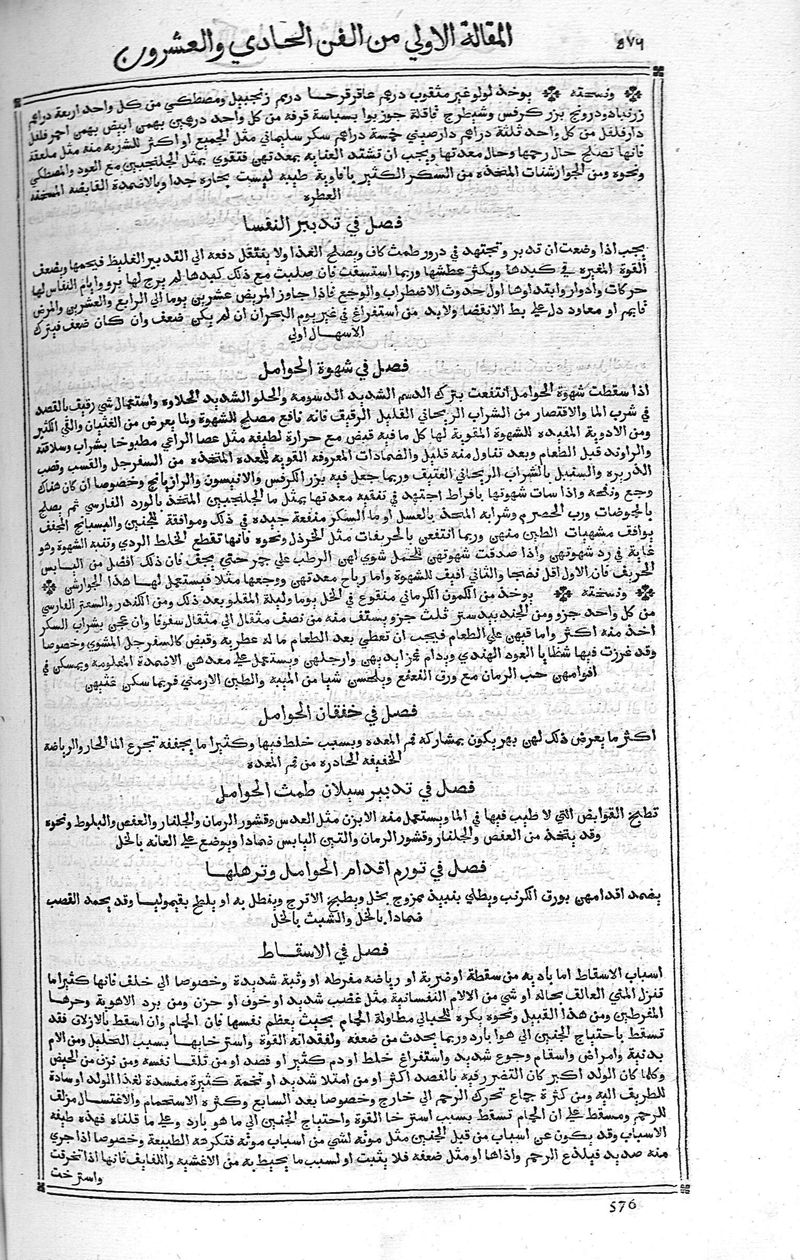 ٥٧٦ المقالة الاولي من الفن الحادي والعشرون
ونسخته يوخذ لولو غير مثقوب درهم عاقرقرحا درهم زنجبيل ومصطكي من كل واحد اربعة دراهم
زرنباد ودرونج بزر كرفس وشيطرج قاقلة جوزبوا بسباسة قرفه من كل واحد درهمين بهمن ابيض بهمن احمر فلفل
دارفلفل من كل واحد ثلثة دراهم دارصيني خمسة دراهم سكر سليماني مثل الجميع او اكثر للشربة منه مثل ملعقة
فانها تصلح حال رحمها وحال معدتها ويجب ان تشتد العنايه بمعدتهن فتقوي بمثل الجلنجبين مع العود والمصطكي
ونحوه ومن الجوارشنات المتخذه من السكر الكثير بافاوية طيبه ليست بحاره جدا وبالاضمدة القابضه المسخنه
العطره
فصل في تدبير النفسا
يجب اذا وضعت ان تدبر وتجتهد في درور طمث كاف ويصلح الغذا ولا ينتقل دفعه الي التدبير الغليظ فيحمها ويضعف
القوة المغيره في كبدها ويكثر عطشها وربما استسقت فان صلبت مع ذلك كبدها لم يرج لها برو وايام النفاس لها
حركات وادوار وابتداوها اول حدوث الاضطراب والوجع فاذا جاوز المريض عشرين يوما الي الرابع والعشرين والمرض
او معاود دل علي بط الانقضا ولابد من استفراغ في غير يوم البحران ان لم يكن ضعف وان كان ضعف فيترك
الاسهال اولي
فصل في شهوة الحوامل
اذا سقطت شهوة الحوامل انتفعت بترك الدسم الشديد الدسومه والحلو الشديد الحلاوه واستعمال شي رقيق بالقصد
في شرب الما والاقتصار من الشراب الريحاني القليل الرقيق فانه نافع مصلح للشهوة ولما يعرض من الغثيان والقي الكثير
ومن الادوية المفيده للشهوة المقوية لها كل ما فيه قبض مع حرارة لطيفه مثل عصا الراعي مطبوخا بشراب وسلاقته
والراوند قبل الطعام وبعد تناول منه قليل والضمادات المعروفه القويه للمعده المتخذه من السفرجل والقسب وقصب
الذريره والسنبل بالشراب الريحاني العتيق وربما جعل فيه بزر الكرفس والانيسون والرازيانج وخصوصا ان كان هناك
وجع ونفخه واذا سات شهوتها بافراط اجتهد في تنقيه معدتها بمثل ما الجلنجبين المتخذ بالورد الفارسي ثم يصلح
بالحموضات ورب الحصرم وشرابه المتخذ بالعسل او ما السكر منفعة جيده في ذلك وموافقة للجنين والنشا المجفف
يوافق مشتهيات الطين منهن وربما انتفعن بالحريفات مثل الخردل ونحوه فانها تقطع الخلط الردي وتنبه الشهوة وهو
غاية في رد شهوتهن واذا صدقت شهوتهن للحمل شوي لهن الرطب علي جمر حتي يجف فان ذلك افضل من اليابس
الحريف فان الاول اقل نضجا والثاني افيف للشهوة واما رياح معدتهن ووجعها مثلا فيستعمل لها هذا الجوارشن
ونسخته يوخذ من الكمون الكرماني منقوع في الخل يوما وليلة المقلو بعد ذلك ومن الكندر والسعتر الفارسي
من كل واحد جزو ومن الجندبيدستر ثلث جزو يسقف منه من نصف مثقال الي مثقال سفوفا وان عجن بشراب السكر
اخذ منه اكثر واما قيهن علي الطعام فيجب ان تعطي بعد الطعام ما له عطرية وقبض كالسفرجل المشوي وخصوصا
وقد غرزت فيها شظايا العود الهندي ويدام غمز ايديهن وارجلهن ويستعمل علي معدهن الاضمدة المعلومة ويمسكن في
افواههن حب الرمان مع ورق النعنع ويلحسن شيا من الميبه والطين الارمني فربما سكن غثيهن
فصل في خفقان الحوامل
اكثر ما يعرض ذلك لهن يكون بمشاركه فم المعده وبسبب خلط فيها وكثيرا ما يخففه تجرع الما الحار والرياضة
الخفيفه الحادره من فم المعده
فصل في تدبير سيلان طمث الحوامل
تطبخ القوابض التي لا طيب فيها في الما ويستعمل منه الابزن مثل العدس وقشور الرمان والجلنار والعفص والبلوط ونحوه
وقد يتخذ من العفص والجلنار وقشور الرمان والتين اليابس ضمادا ويوضع علي العانه بالخل
فصل في تورم اقدام الحوامل وترهلها
يضمد اقدامهن بورق الكرنب ويطلي بنبيذ ممزوج بخل ويطبخ الاترج وينطل به او يلطخ بقيموليا وقد يحمد القصب
ضمادا بالخل والشبث بالخل
فصل في الاسقاط
اسباب الاسقاط اما باديه من سقطة او ضربة او رياضه مفرطه او وثبة شديدة وخصوصا الي خلف فانها كثيرا ما
تنزل المني العالق بحاله او شي من الالام النفسانية مثل غضب شديد او خوف او حزن ومن برد الاهوية وحرها
المفرطين ومن هذا القبيل ونحوه يكره للحبالي مطاولة الحمام بحيث يعظم نفسها فان الحمام وان اسقط بالازلاق فقد
تسقط باحتياج الجنين الي هوا بارد وربما يحدث من ضعفه ولفقدانه القوة واسترخايها بسبب التحليل ومن الام
بدنية وامراض واسقام وجوع شديد واستفراغ خلط او دم كثير او فصد او من تلقا نفسه ومن نزف من الحيض
وكلما كان الولد اكبر كان التضرر فيه بالفصد اكثر او من امتلا شديد او تخمة كثيرة مفسدة لغذا الولد او سادة
للطريف اليه ومن كثرة جماع تحرك الرحم الي خارج وخصوصا بعد السابع وكثره الاستحمام والاغتسال مزلق
للرحم ومسقط علي ان الحمام تسقط بسبب استرخا القوة واحتياج الجنين الي ما هو بارد وعلي ما قلناه فهذه طبقه
الاسباب وقد يكون عن اسباب من قبل الجنين مثل موته لشي من اسباب موته فتكرهه الطبيعة وخصوصا اذا جري
منه صديد فيلذع الرحم واذاها او مثل ضعفه فلا يثبت او لسبب ما يحيط به من الاغشيه واللفايف فانها اذا تخرقت
واسترخت
576